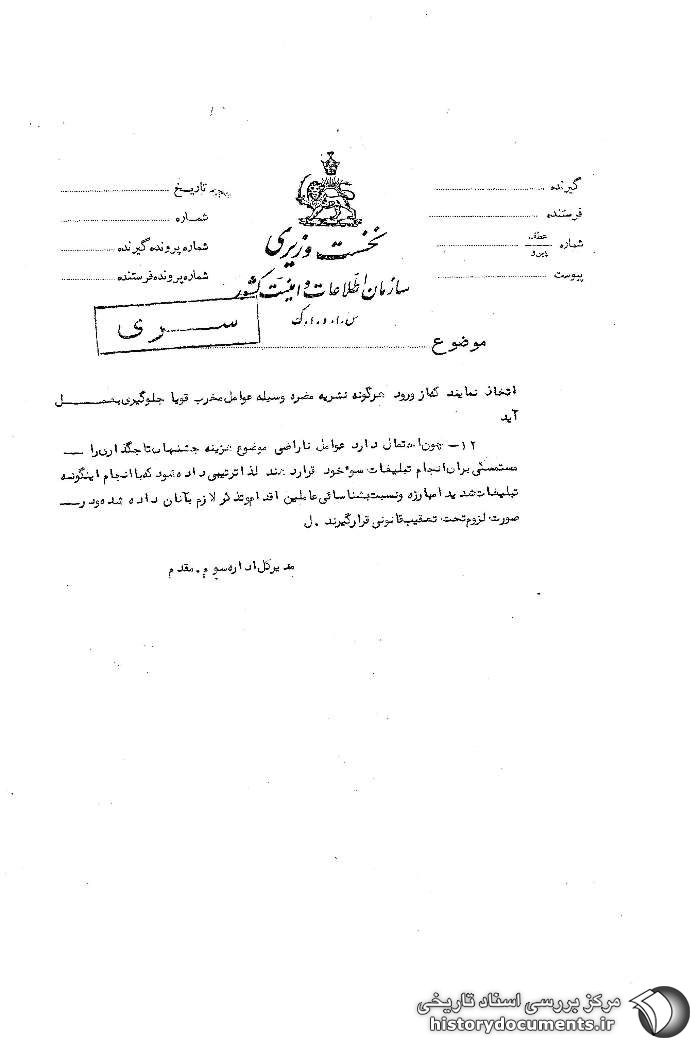 گیرنده
فرستنده
شماره عطف پیرو
پیوست
تاریخ
شماره
شماره پرونده گیرنده
شماره پرونده فرستنده
نخست وزیری
سازمان اطلاعات و امنیت کشور
س.ا.و.ا.ک
سری
موضوع
اتخاذ نمایند که از ورود هرگونه نشریه مضره وسیله عوامل مخرب قویا جلوگیری بعمل
آید
۱۲- چون احتمال دارد عوامل ناراضی موضوع هزینه جشنهای تاجگذاری را
مستمسکی برای انجام تبلیغات سو خود قرار دهند لذا ترتیبی داده شود که با انجام اینگونه
تبلیغات شدیدا مبارزه و نسبت بشناسائی عاملین اقدام و تذکر لازم بآنان داده شود در
صورت لزوم تحت تعقیب قانونی قرار گیرند . ل
مدیرکل اداره سوم . مقدم
مرکز بررسی اسناد تاریخی
historydocuments.ir